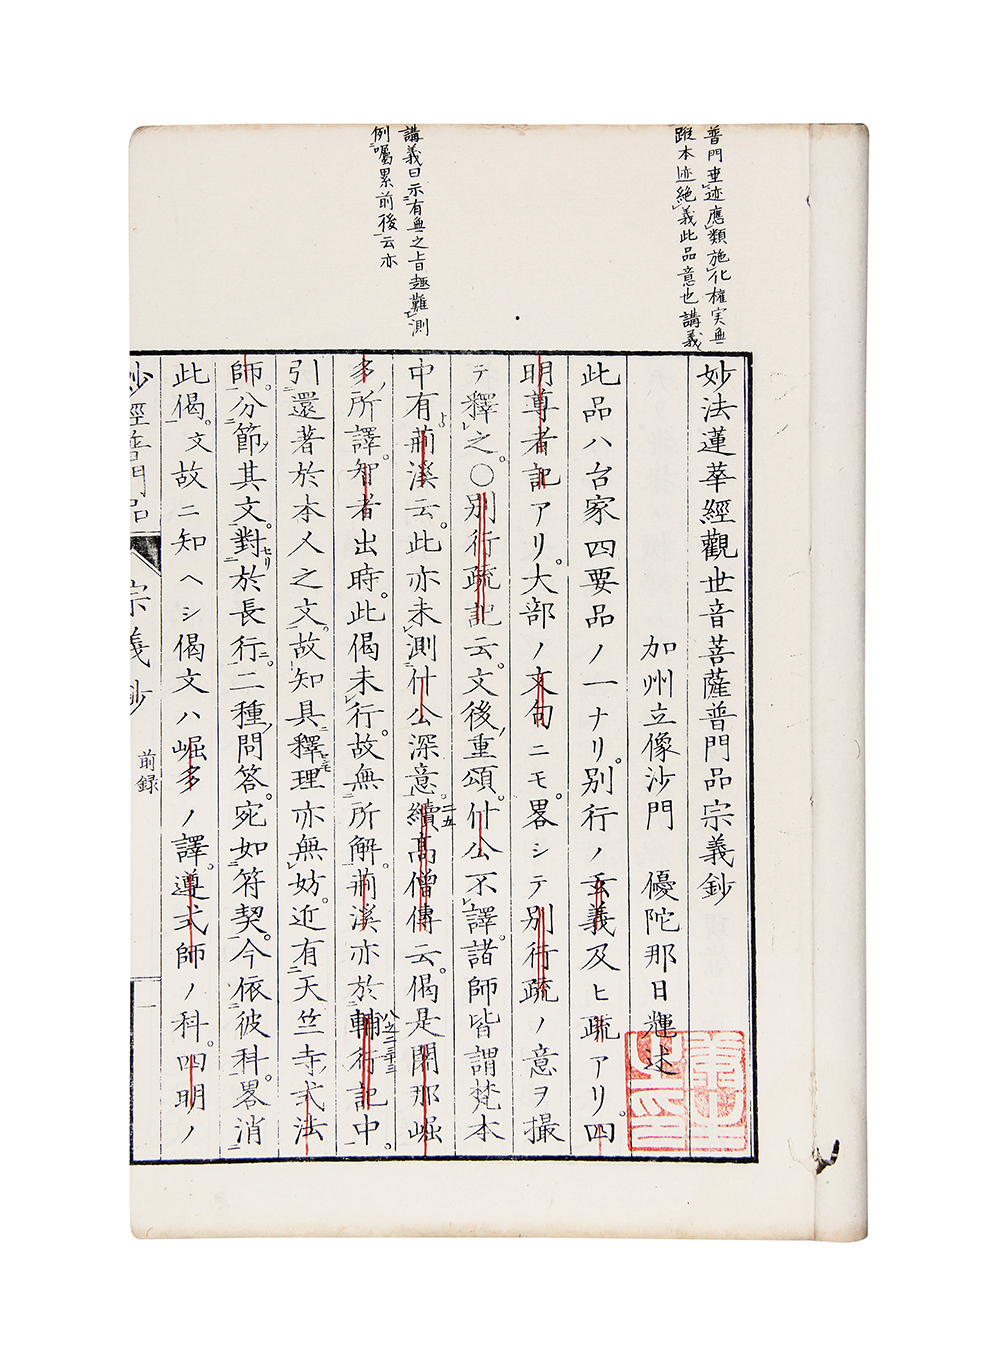 普門垂迹應類施化權実無
蹤本迹絶義此品意也講義
講義曰示有無之旨趣難測
例囑累前後云亦
妙法蓮華經觀世音菩薩普門品宗義鈔
加州立像沙門 優陀那日輝述
此品ハ台家四要品ノ一ナリ。別行ノ玄義及ヒ疏アリ。四
明尊者記アリ。大部ノ文句ニモ。畧シテ別行疏ノ意ヲ撮
テ釋之。〇別行疏記云。文後重頌。什公不譯。諸師皆謂梵本
中有。荊溪云。此亦未測什公深意。續高僧傳云。偈是闍那崛
多所譯。智者出時。此偈未行。故無所解。荊溪亦於輔行記中。
引還著於本人之文。故知具釋理亦無妨。近有天竺寺式法
師。分節其文。對於長行。二種問答。宛如符契。今依彼科。畧消
此偈。文故ニ知ヘシ偈文ハ崛多ノ譯。遵式師ノ科。四明ノ
妙經普門品 宗義鈔 前録 一